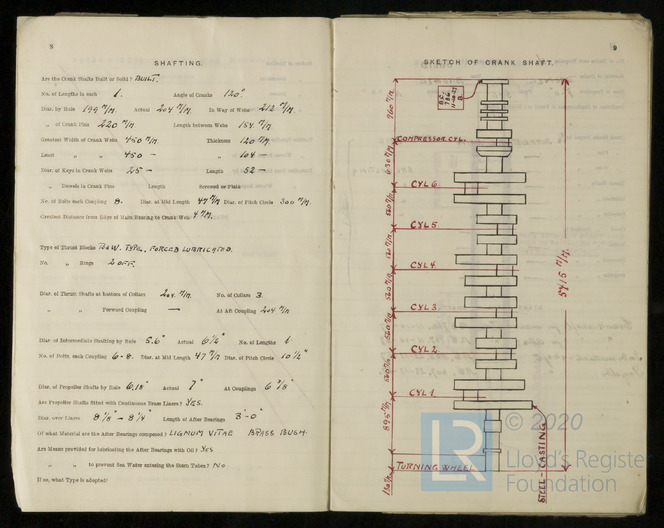 8
SHAFTING.
Are the Crank Shafts Built or Solid? BUILT.
No. of Lengths in each 1. Angle of Cranks 120°
Diar. by Rule 199 M/M. Actual 204 M/M. In Way of Webs 212 M/M.
„ of Crank Pins 220 M/M Length between Webs 184 M/M.
Greatest Width of Crank Webs 450 M/M Thickness 120 M/M.
Least „ „ 450 — „ 104 —
Diar. of Keys in Crank Webs 25 — Length 52 —
„ Dowels in Crank Pins Length Screwed or Plain
No. of Bolts each Coupling 8. Diar. at Mid Length 47 M/M Diar. of Pitch Circle 300 M/M.
Greatest Distance from Edge of Main Bearing to Crank Web 4 M/M.
Type of Thrust Blocks B&W. TYPE, FORCED LUBRICATED.
No. „ Rings 2 OFF.
Diar. of Thrust Shafts at bottom of Collars 204 M/M. No. of Collars 3.
„ „ Forward Coupling — At Aft Coupling 204 M/M
Diar. of Intermediate Shafting by Rule 5.6" Actual 6½" No. of Lengths 1.
No. of Bolts, each Coupling 6-8. Diar. at Mid Length 47 M/M Diar. of Pitch Circle 10½"
Diar. of Propeller Shafts by Rule 6.18" Actual 7" At Couplings 6⅞"
Are Propeller Shafts fitted with Continuous Brass Liners? YES.
Diar. over Liners 8⅛" - 8¼" Length of After Bearings 3'-0"
Of what Material are the After Bearings composed? LIGNUM VITAE BRASS BUSH.
Are Means provided for lubricating the After Bearings with Oil? YES
„ „ to prevent Sea Water entering the Stern Tubes? NO.
If so, what Type is adopted?
9
SKETCH OF CRANK SHAFT.
COMPRESSOR CYL.
CYL 6
CYL 5
CYL 4
CYL 3
CYL 2
CYL 1
TURNING WHEEL
5415 M/M.
STEEL-CASTING
895 M/M
© 2020
LR
Lloyd's Register
Foundation